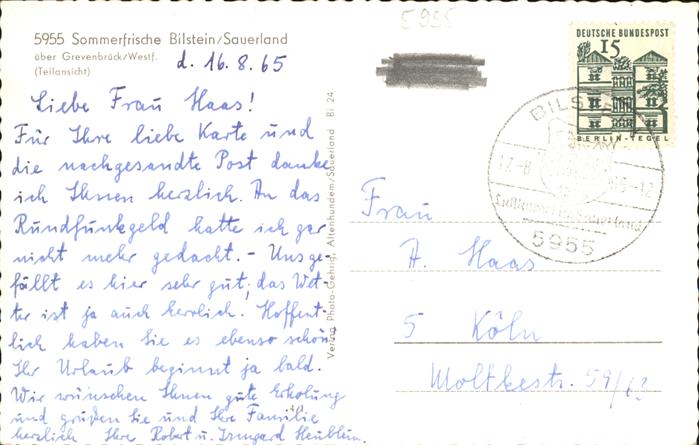 5955
5955 Sommerfrische Bilstein/Sauerland
über Grevenbrück/Westf.
(Teilansicht)
d. 16.8.65
Liebe Frau Haas!
Für Ihre liebe Karte und
die nachgesandte Post danke
ich Ihnen herzlich. An das
Rundfunkgeld hatte ich gar
nicht mehr gedacht. - Uns ge-
fällt es hier sehr gut; das Wet-
ter ist ja auch herrlich. Hoffent-
lich haben Sie es ebenso schön.
Ihr Urlaub beginnt ja bald.
Wir wünschen Ihnen gute Erholung
und grüßen Sie und Ihre Familie
herzlich Ihre Robert u. Irmgard Heublein.
Verlag Photo-Gehrig, Altenhundem/Sauerland Bi 24
DEUTSCHE BUNDESPOST
15
BERLIN-TEGEL
BILSTEIN
17.-8.
65-12
Luftkurort im Sauerland
5955
Frau
A. Haas
5 Köln
Moltkestr. 59/63